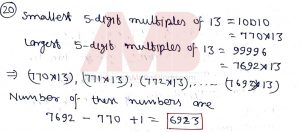 20 Smallest 5-digit multiples of 13 = 10010
= 770*13
Largest 5-digit multiples of 13 = 99996
= 7692*13
⇒ (770*13), (771*13), (772*13), ..... (7692*13)
Number of these numbers are
7692 - 770 + 1 = 6923